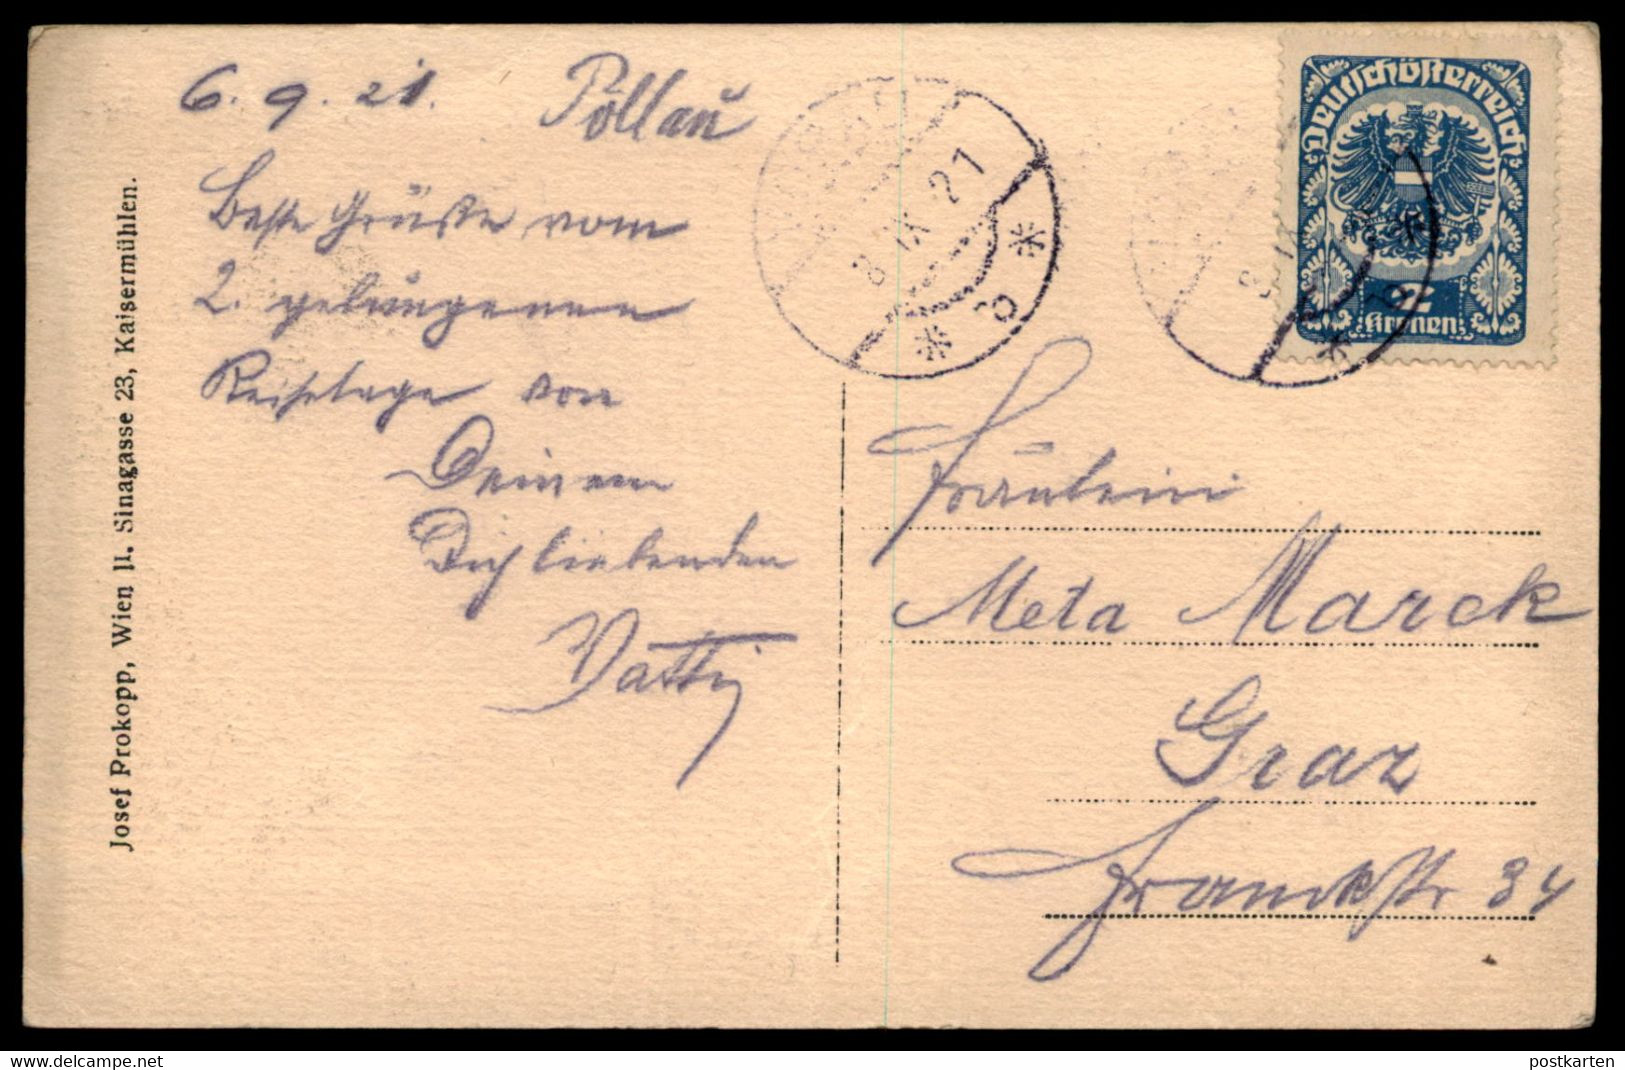 6. 9. 21. Pöllau
Beste Grüße vom
2. gelungenen
Reisetage von
Deinem
Dich liebenden
Vatti
Josef Prokopp, Wien II. Sinagasse 23, Kaisermühlen.
8 IX 21
* b *
Deutschösterreich
2
Kronen
Fräulein
Meta Marck
Graz
Franckstr 34
postkarten